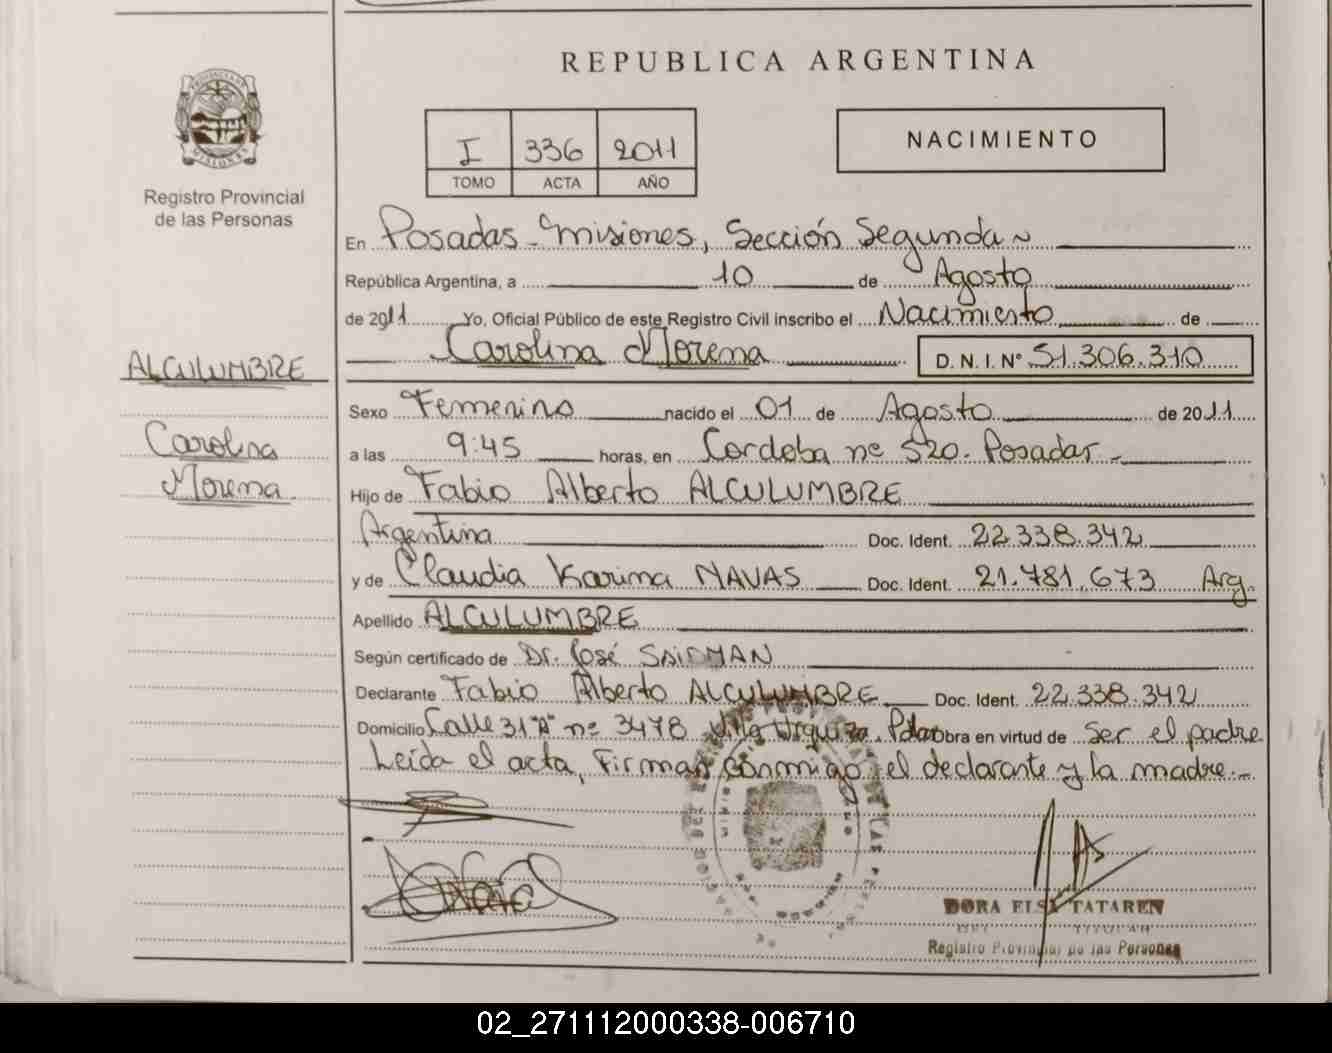 REPUBLICA ARGENTINA
I 336 2011
TOMO ACTA AÑO
NACIMIENTO
Registro Provincial
de las Personas
En Posadas - Misiones, Sección Segunda
República Argentina, a 10 de Agosto
de 2011 Yo, Oficial Público de este Registro Civil inscribo el Nacimiento de
Carolina Morena D.N.I.Nº 51.306.310
ALCULUMBRE
Carolina
Morena
Sexo Femenino nacido el 01 de Agosto de 2011
a las 9:45 horas, en Cordoba nº 520. Posadas -
Hijo de Fabio Alberto ALCULUMBRE
Argentina Doc. Ident. 22.338.342
y de Claudia Karina NAVAS Doc. Ident. 21.781.673 Arg.
Apellido ALCULUMBRE
Según certificado de Dr. José SAIDMAN
Declarante Fabio Alberto ALCULUMBRE Doc. Ident. 22.338.342
Domicilio Calle 31 "A" nº 3478 Villa Urquiza. Pdas Obra en virtud de Ser el padre
Leída el acta, Firman conmigo el declarante y la madre.-
DORA ELSA TATAREN
Registro Provincial de las Personas
02_271112000338-006710